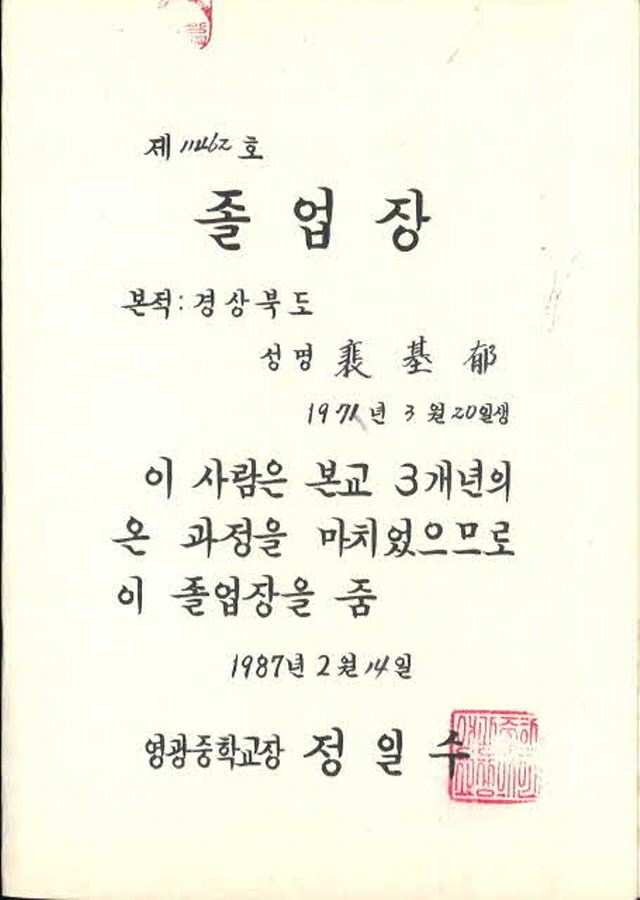 제 11462 호
졸 업 장
본적: 경상북도
성명 裵 基 郁
1971년 3월 20일생
이 사람은 본교 3개년의
온 과정을 마치었으므로
이 졸업장을 줌
1987년 2월 14일
영광중학교장 정 일 수